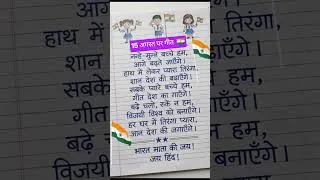 15 अगस्त पर गीत
नन्हे-मुन्ने बच्चे हम,
आगे बढ़ते जाएँगे।
हाथ में लेकर प्यारा तिरंगा,
शान देश की बढ़ाएँगे।
सबके प्यारे बच्चे हम,
गीत देश का गाएँगे।
बढ़े चलो, रुकें न हम,
विजयी विश्व को बनाएँगे।
हर घर में तिरंगा प्यारा,
आन देश की जगाएँगे।
भारत माता की जय!
जय हिंद!